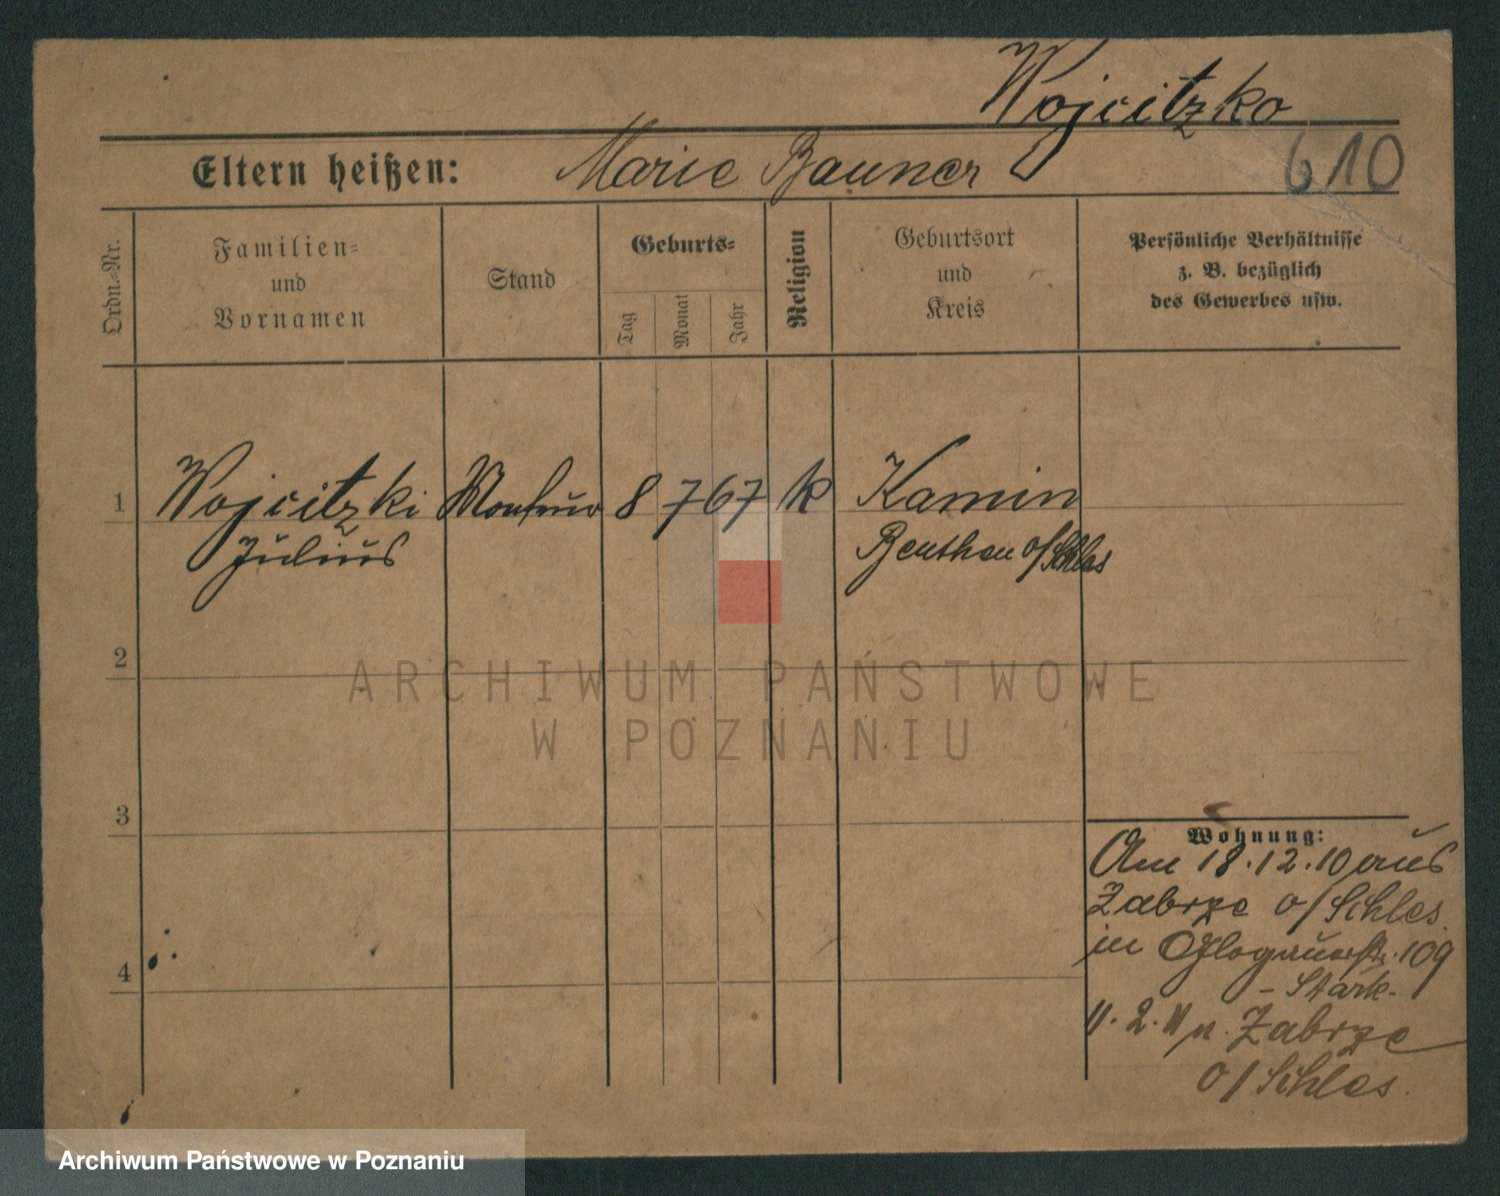 Wojcitzko
Eltern heißen: Marie Bauner
610
Ordn.-Nr.
Familien-
und
Vornamen
Stand
Geburts-
Tag
Monat
Jahr
Religion
Geburtsort
und
Kreis
Persönliche Verhältnisse
z. B. bezüglich
des Gewerbes usw.
1 Wojcitzki Monteur 8 7 67 k Kamin
Julius Beuthen o/Schles
2
ARCHIWUM PAŃSTWOWE
W POZNANIU
3
Wohnung:
Am 18.12.10 aus
Zabrze o/Schles.
in Glogauerstr. 109
4
- Stark -
11.2.11 n. Zabrze
o/Schles.
Archiwum Państwowe w Poznaniu